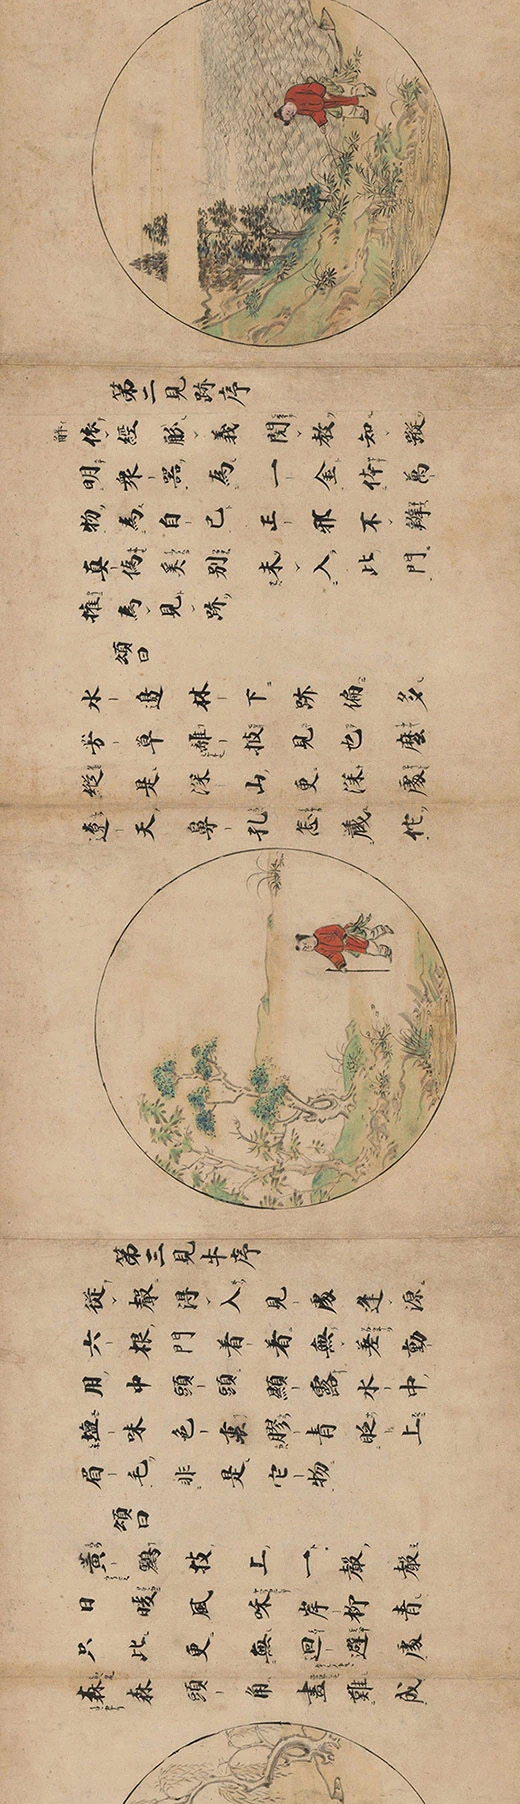 第二見跡序
依經解義閱教知蹤
明衆器為一金体萬
物為自己正邪不辨
真偽奚別未入此門
權為見跡
頌曰
水邊林下跡偏多
芳草離披見也麼
縱是深山更深處
遼天鼻孔怎藏佗
第三見牛序
從聲得入見處逢源
六根門着着無差動
用中頭頭顯露水中
塩味色裏膠青眨上
眉毛非是它物
頌曰
黃鸝枝上一聲聲
日暖風和岸柳青
只此更無迴避處
森森頭角畫難成